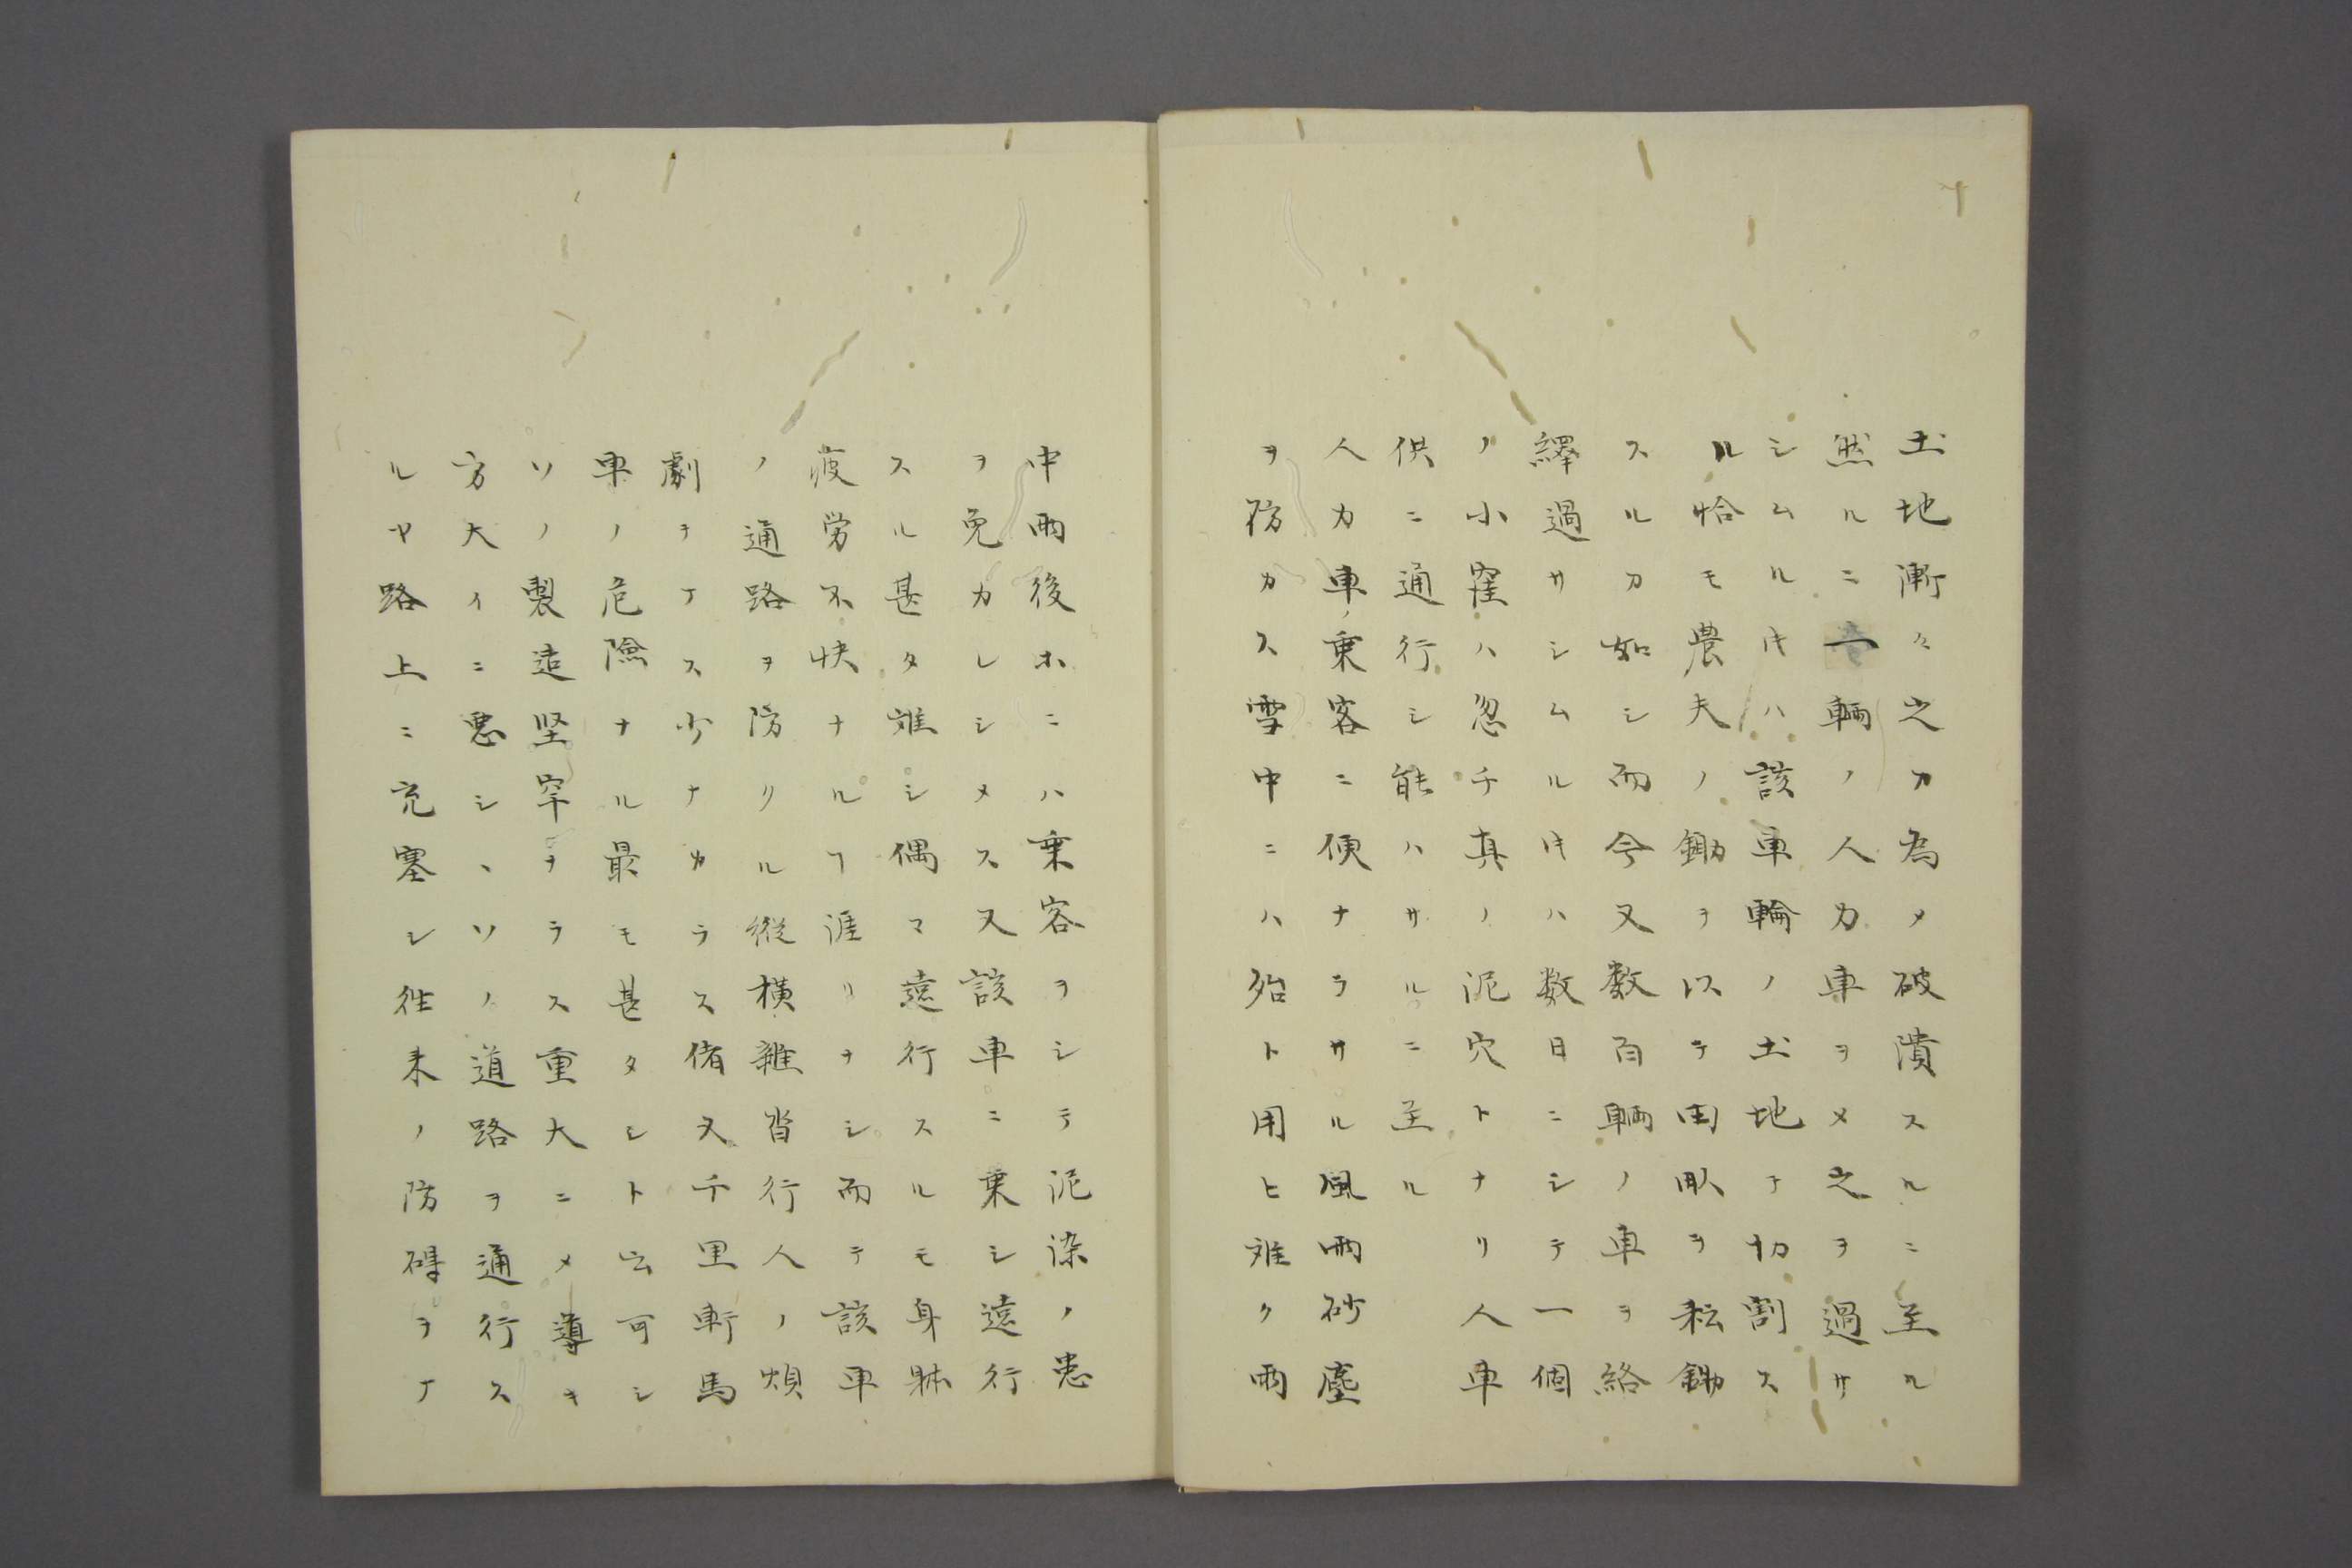 土地漸々之カ為メ破潰スルニ至ル
然ルニ一輌ノ人力車ヲメ之ヲ過サ
シムルキハ該車輪ノ土地ヲ切割ス
ル恰モ農夫ノ鋤ヲ以テ田畝ヲ耘鋤
スルカ如シ而今又数百輌ノ車ヲ絡
繹過サシムルキハ数日ニシテ一個
ノ小窪ハ忽チ真ノ泥穴トナリ人車
供ニ通行シ能ハサルニ至ル
人力車ノ乗客ニ便ナラサル風雨砂塵
ヲ防カス雪中ニハ殆ト用ヒ難ク雨
中雨後ホニハ乗客ヲシテ泥染ノ患
ヲ免カレシメス又該車ニ乗シ遠行
スル甚タ難シ偶マ遠行スルモ身躰
疲労不快ナルヿ涯リナシ而テ該車
ノ通路ヲ防クル縦横雑沓行人ノ煩
劇ヲナス少ナカラス偖又千里軒馬
車ノ危険ナル最モ甚タシト云可シ
ソノ製造堅牢ナラス重大ニメ導キ
方大イニ悪シヽソノ道路ヲ通行ス
ルヤ路上ニ充塞シ往来ノ防碍ヲナ